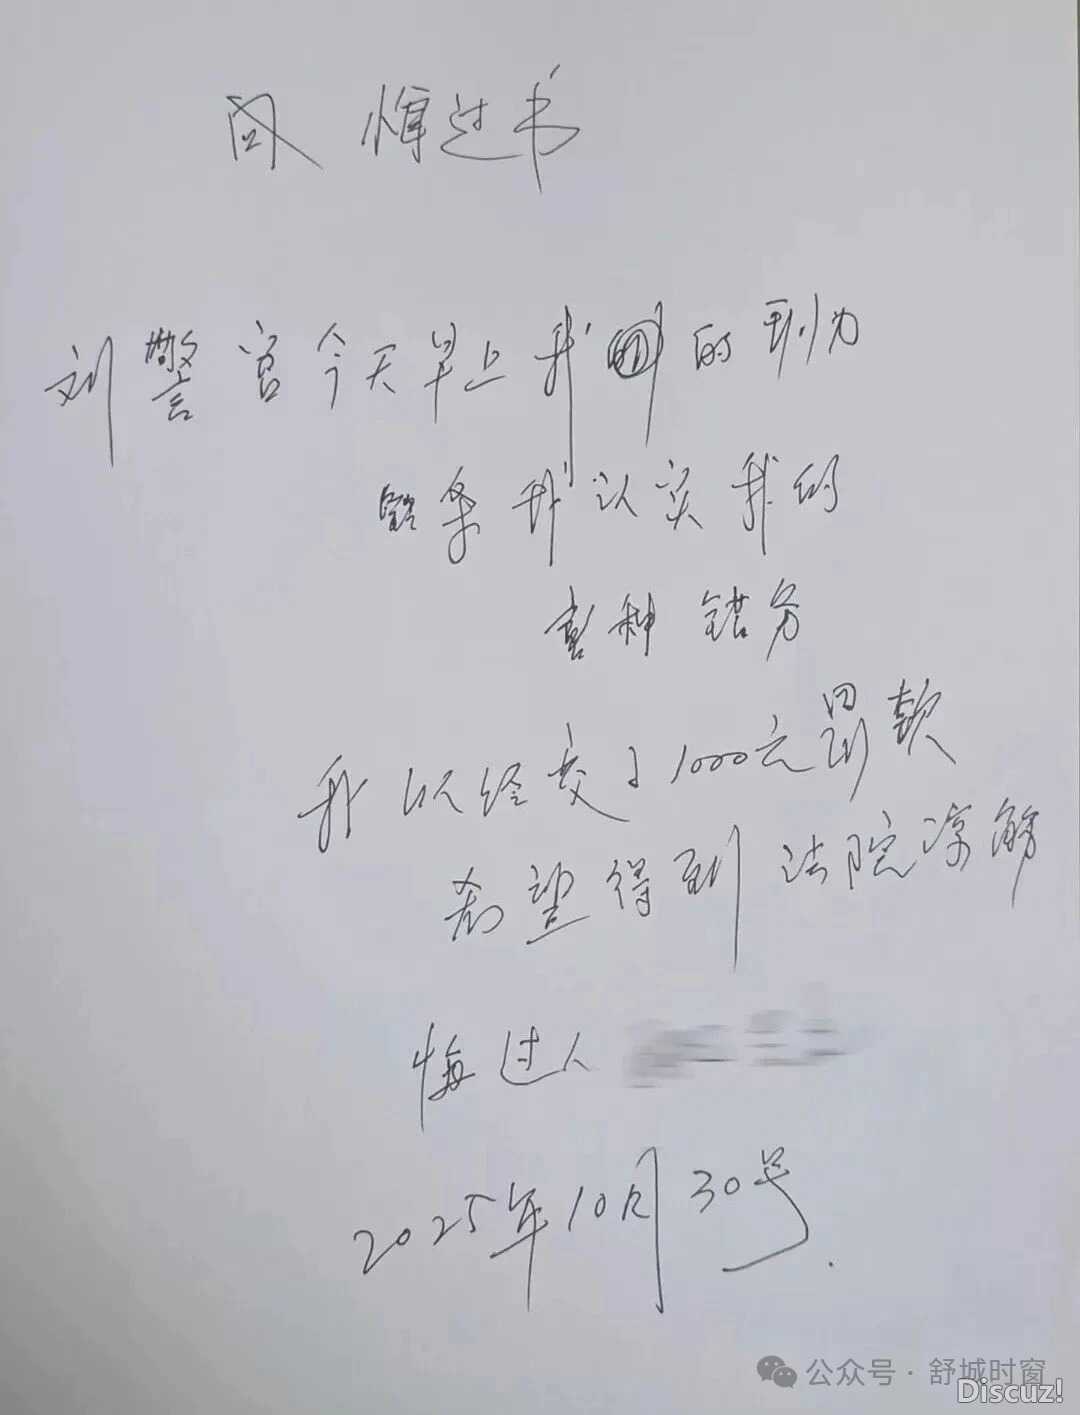 悔过书
刘警官今天早上我的到为
我认实我的
错务
我以经交了1000元罚款
希望得到法院凉解
悔过人
2025年10月30号.
公众号·舒城时窗
Discuz!